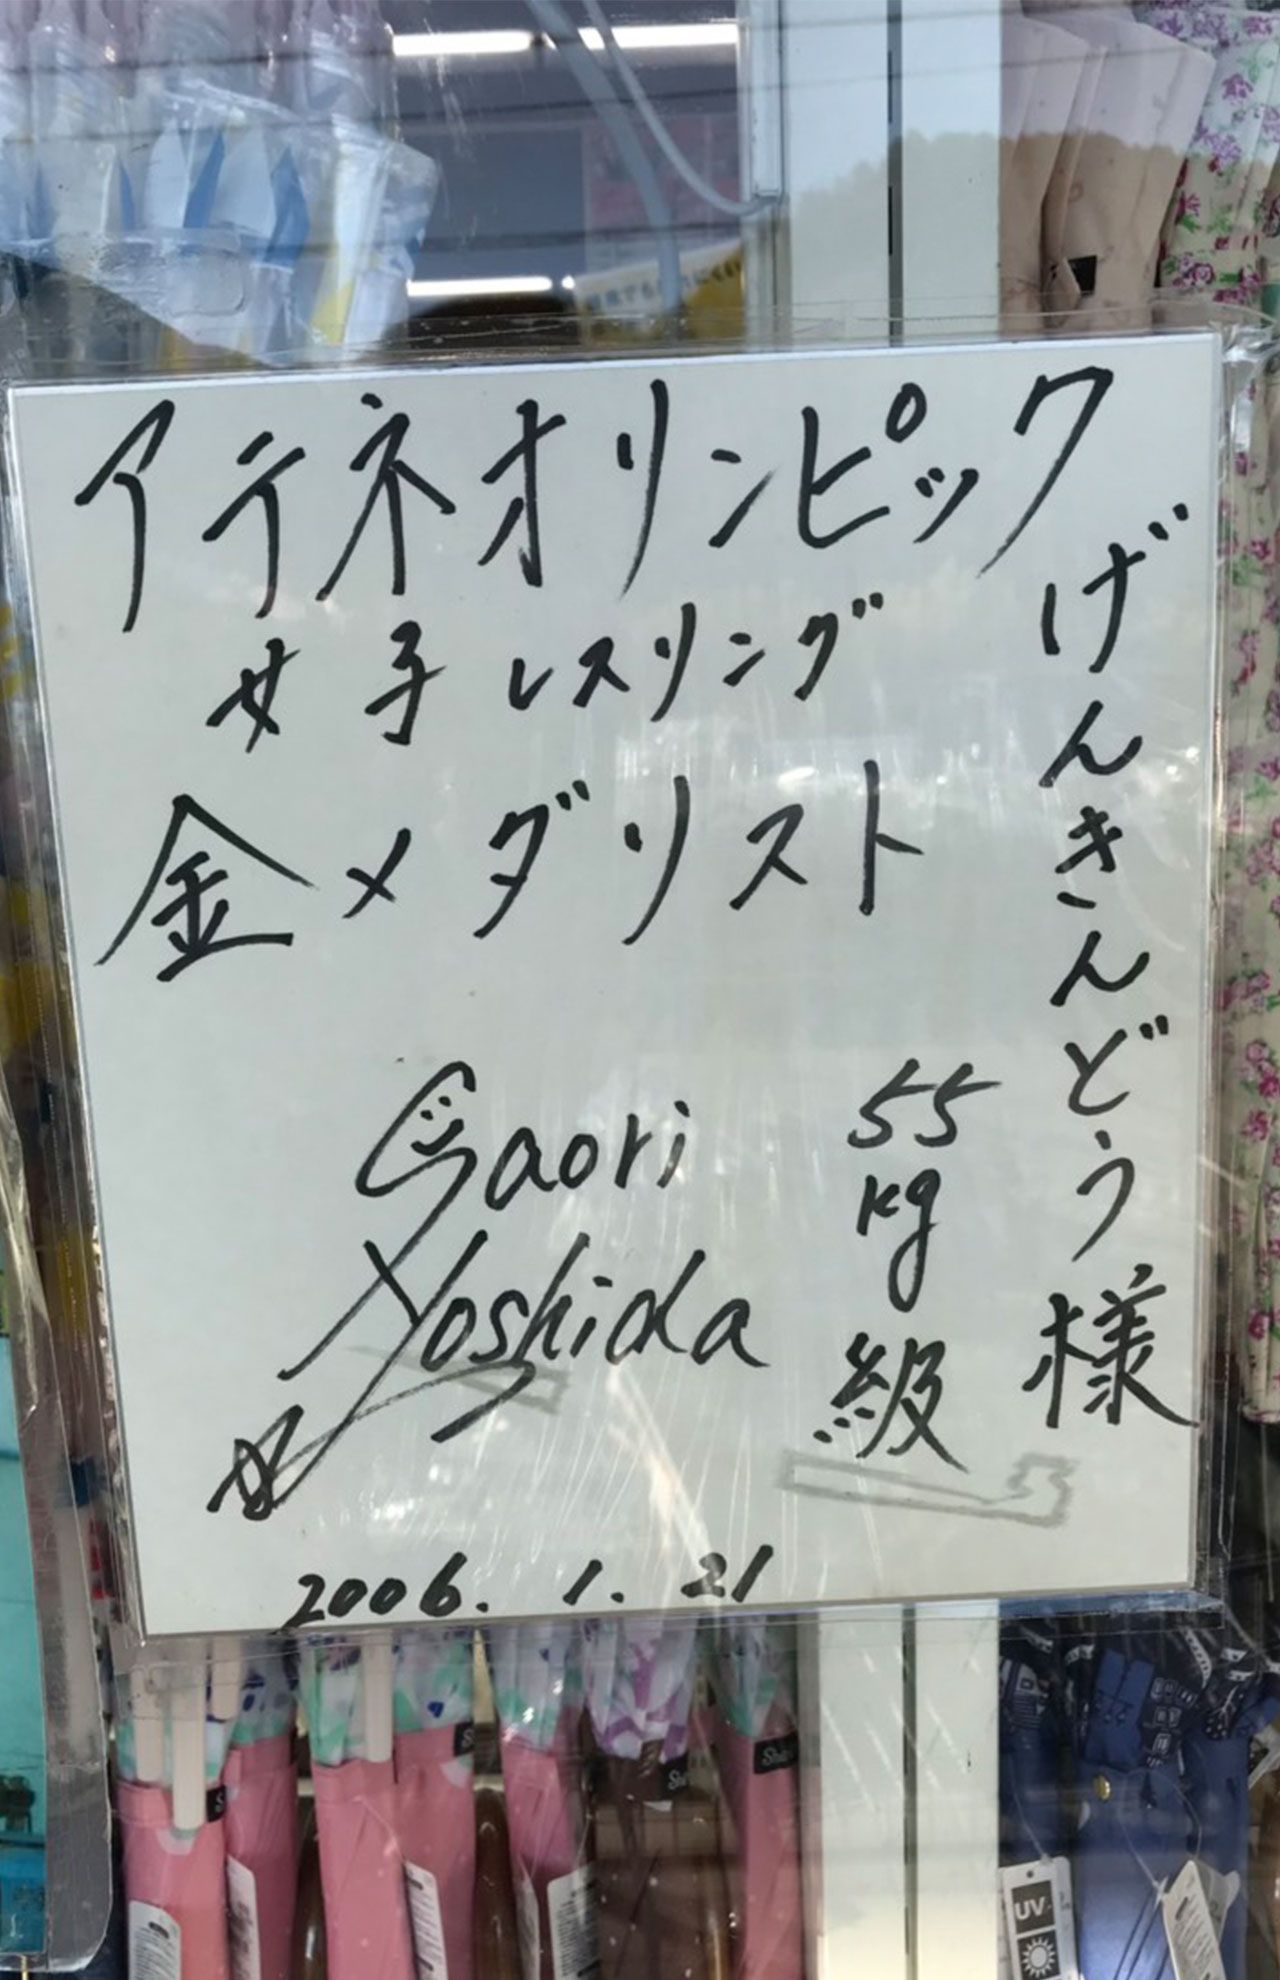 アテネオリンピック
女子レスリング
金メダリスト
げんきんどう様
55kg級
Saori
Yoshida
2006.1.21
UV